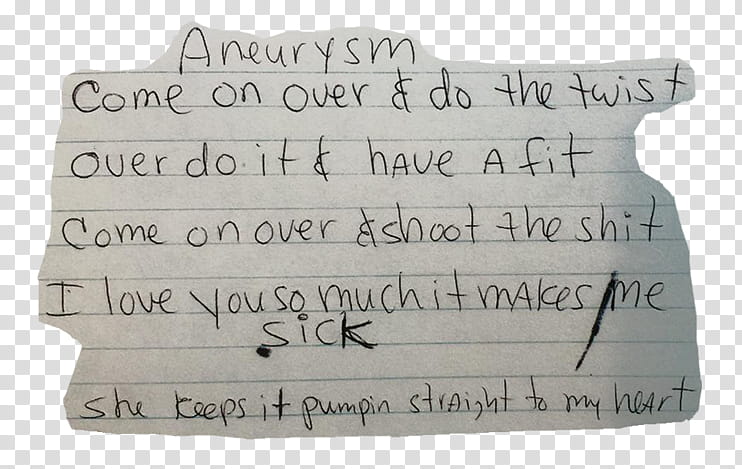 Aneurysm
Come on over & do the twist
over do it & have a fit
Come on over & shoot the shit
I love you so much it makes me
sick
she keeps it pumpin straight to my heart